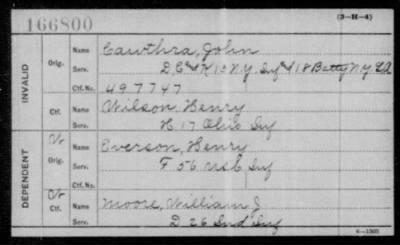 166800
(3-H-4)
INVALID
Orig.
Name Cawthra, John
Serv. D, C & K 12 N.Y. Inf & 18 Batty N.Y. L.A.
Ctf. No. 497747
Ctf.
Name Wilson, Henry
Serv. H 17 Ohio Inf
DEPENDENT
Orig.
Name Everson, Henry
Serv. F 56 Inf
Ctf. No.
Ctf.
Name Moore, William J.
Serv. D 26 Ind Inf
6-1303